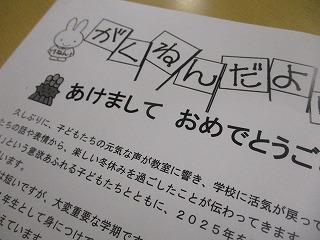 がくねんだよ
けねん
あけまして おめでとうござ
久しぶりに、子どもたちの元気な声が教室に響き、学校に活気が戻って
たちの話や表情から、楽しい冬休みを過ごしたことが伝わってきます。
」という意欲あふれる子どもたちとともに、2025年を
います。
は短いですが、大変重要な学期です
年生として身につけて
えています